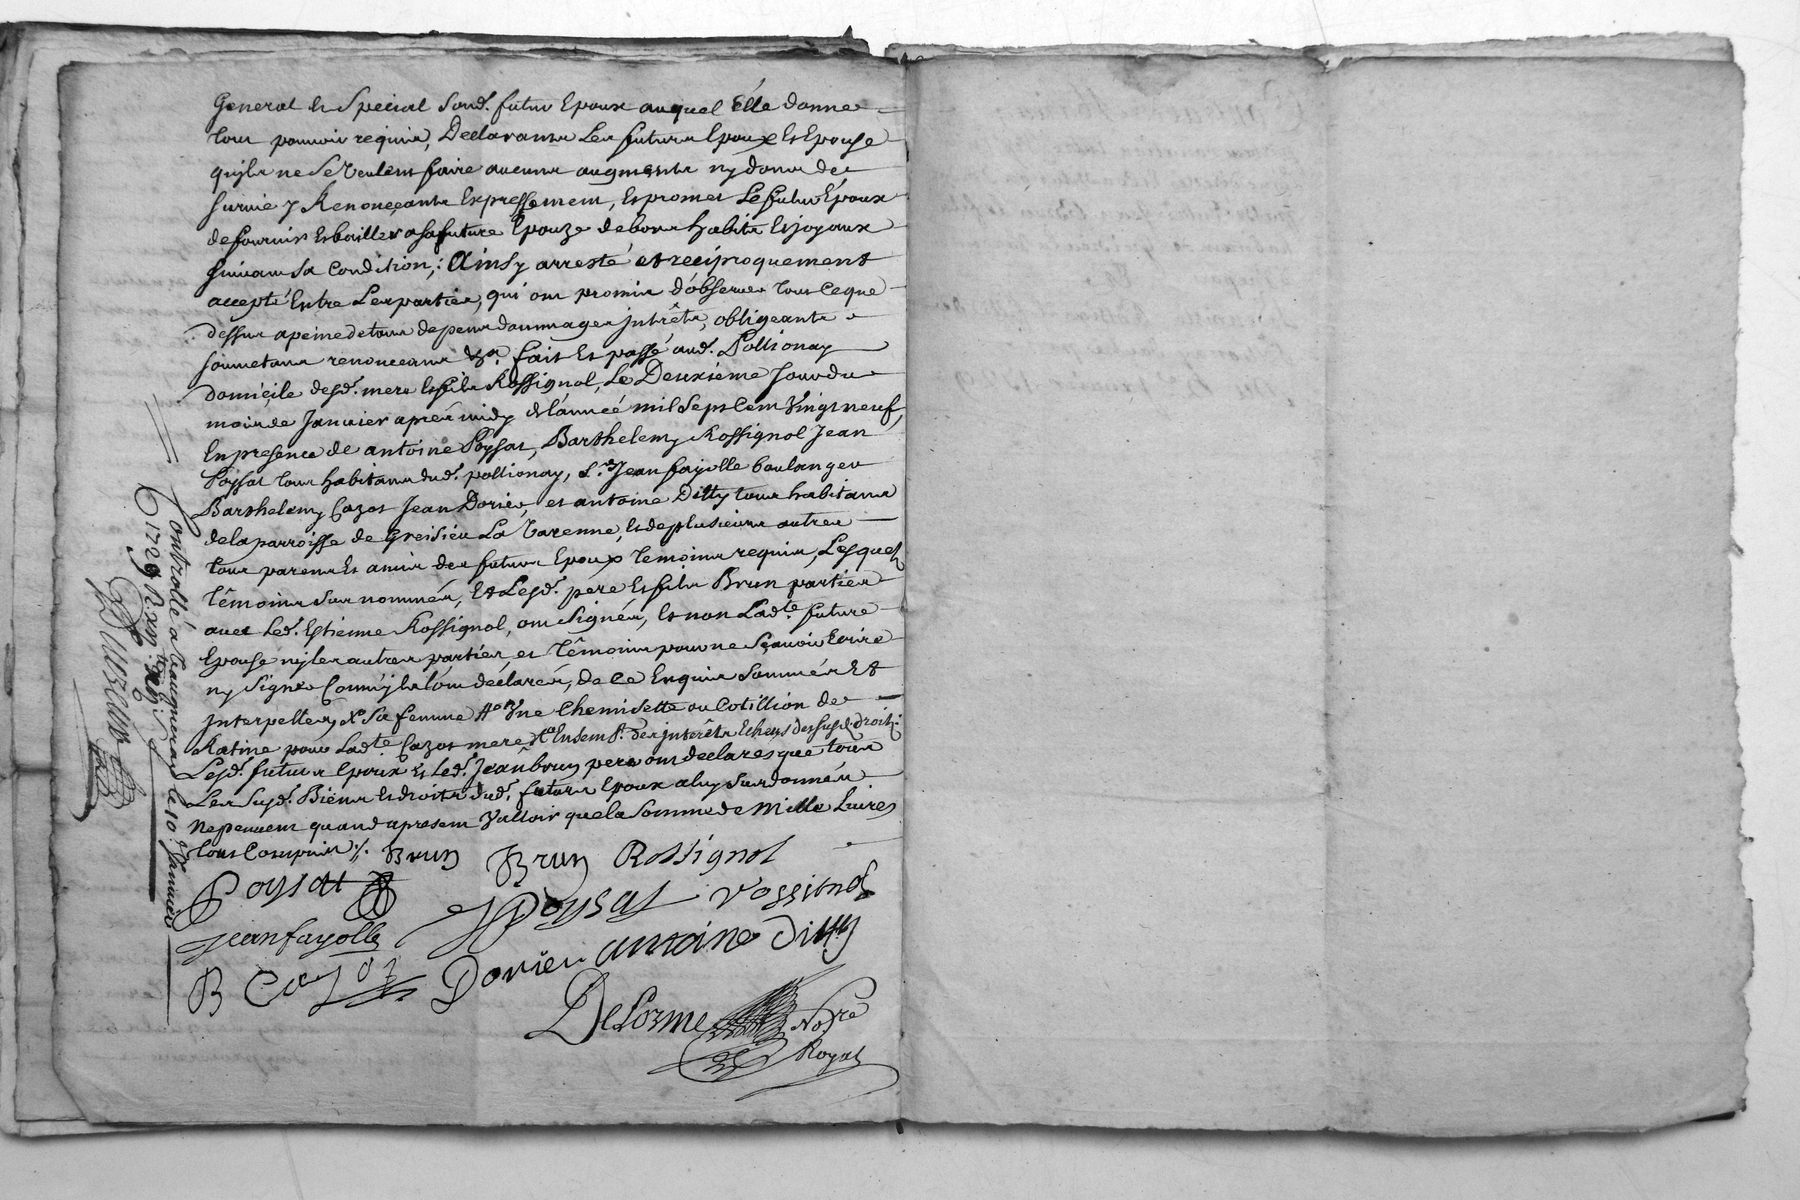 General et Special Sond. futur Epoux auquel Elle donne
tout pouvoir requis, Declarants Les futurs Epoux Et Epouse
quils ne Se Veulent faire aucuns augments ny dons de
Survie y Renonçeants Expressement, Et promet Le futur Epoux
de fournir Et bailler a sa future Epouze de bons habits Et joyaux
Suivant Sa Condition ;: Ainsy arresté et reciproquement
accepté Entre Les parties, qui ont promis d'observer tout Ceque
dessus a peine de tous depens dommages interêts, obligeants
Soumetans renonceants &a. fait Et passé aud. Pollionay
domicile desd. mere Et fils Rossignol, Le Deuxième Jour du
mois de Janvier aprés midy de l'année mil Sept Cent Vingt neuf,
En presence de antoine Poysat, Barthelemy Rossignol Jean
Poysat tous habitans dud. pollionay, Sr. Jean fayolle boulanger
Barthelemy Cazot Jean Dorier, et antoine Ditty tous habitans
de la parroisse de Greisieu La Varenne, Et de plusieurs autres
tous parens Et amis des futurs Epoux temoins requis, Lesquels
Têmoins Sus nommés, Et Lesd. pere Et fils Brun parties
avec Led. Estienne Rossignol, ont Signés, Et non Ladte. future
Epouse ny les autres parties, et Têmoins pour ne Sçavoir Ecrire
ny Signer Comm'ils l'ont déclarés, de Ce Enquis Sommés Et
Interpellés, Xo Sa femme #o Une Chemisette ou Cotillion de
Ratine pour Ladte. Cazot mere, Xo Ensemt. des interêts Echeus desSusd. droits
Lesd. futurs Epoux Et Led. Jean brun pere ont declarés que tous
Les Susd. Biens Et droits dud. futur Epoux a luy Sus donnés
Ne peuvent quand apresent Valloir que la Somme de Mille Livres
tous Compris ./.
Brun Brun Rossignol
Poysat Poysat rossignol
jean fayolle
antoine ditty
B Cazot Dorier
Delorme Nore
Royal
Controllé a Vaugneray le 10e. Janvier
1729 R.